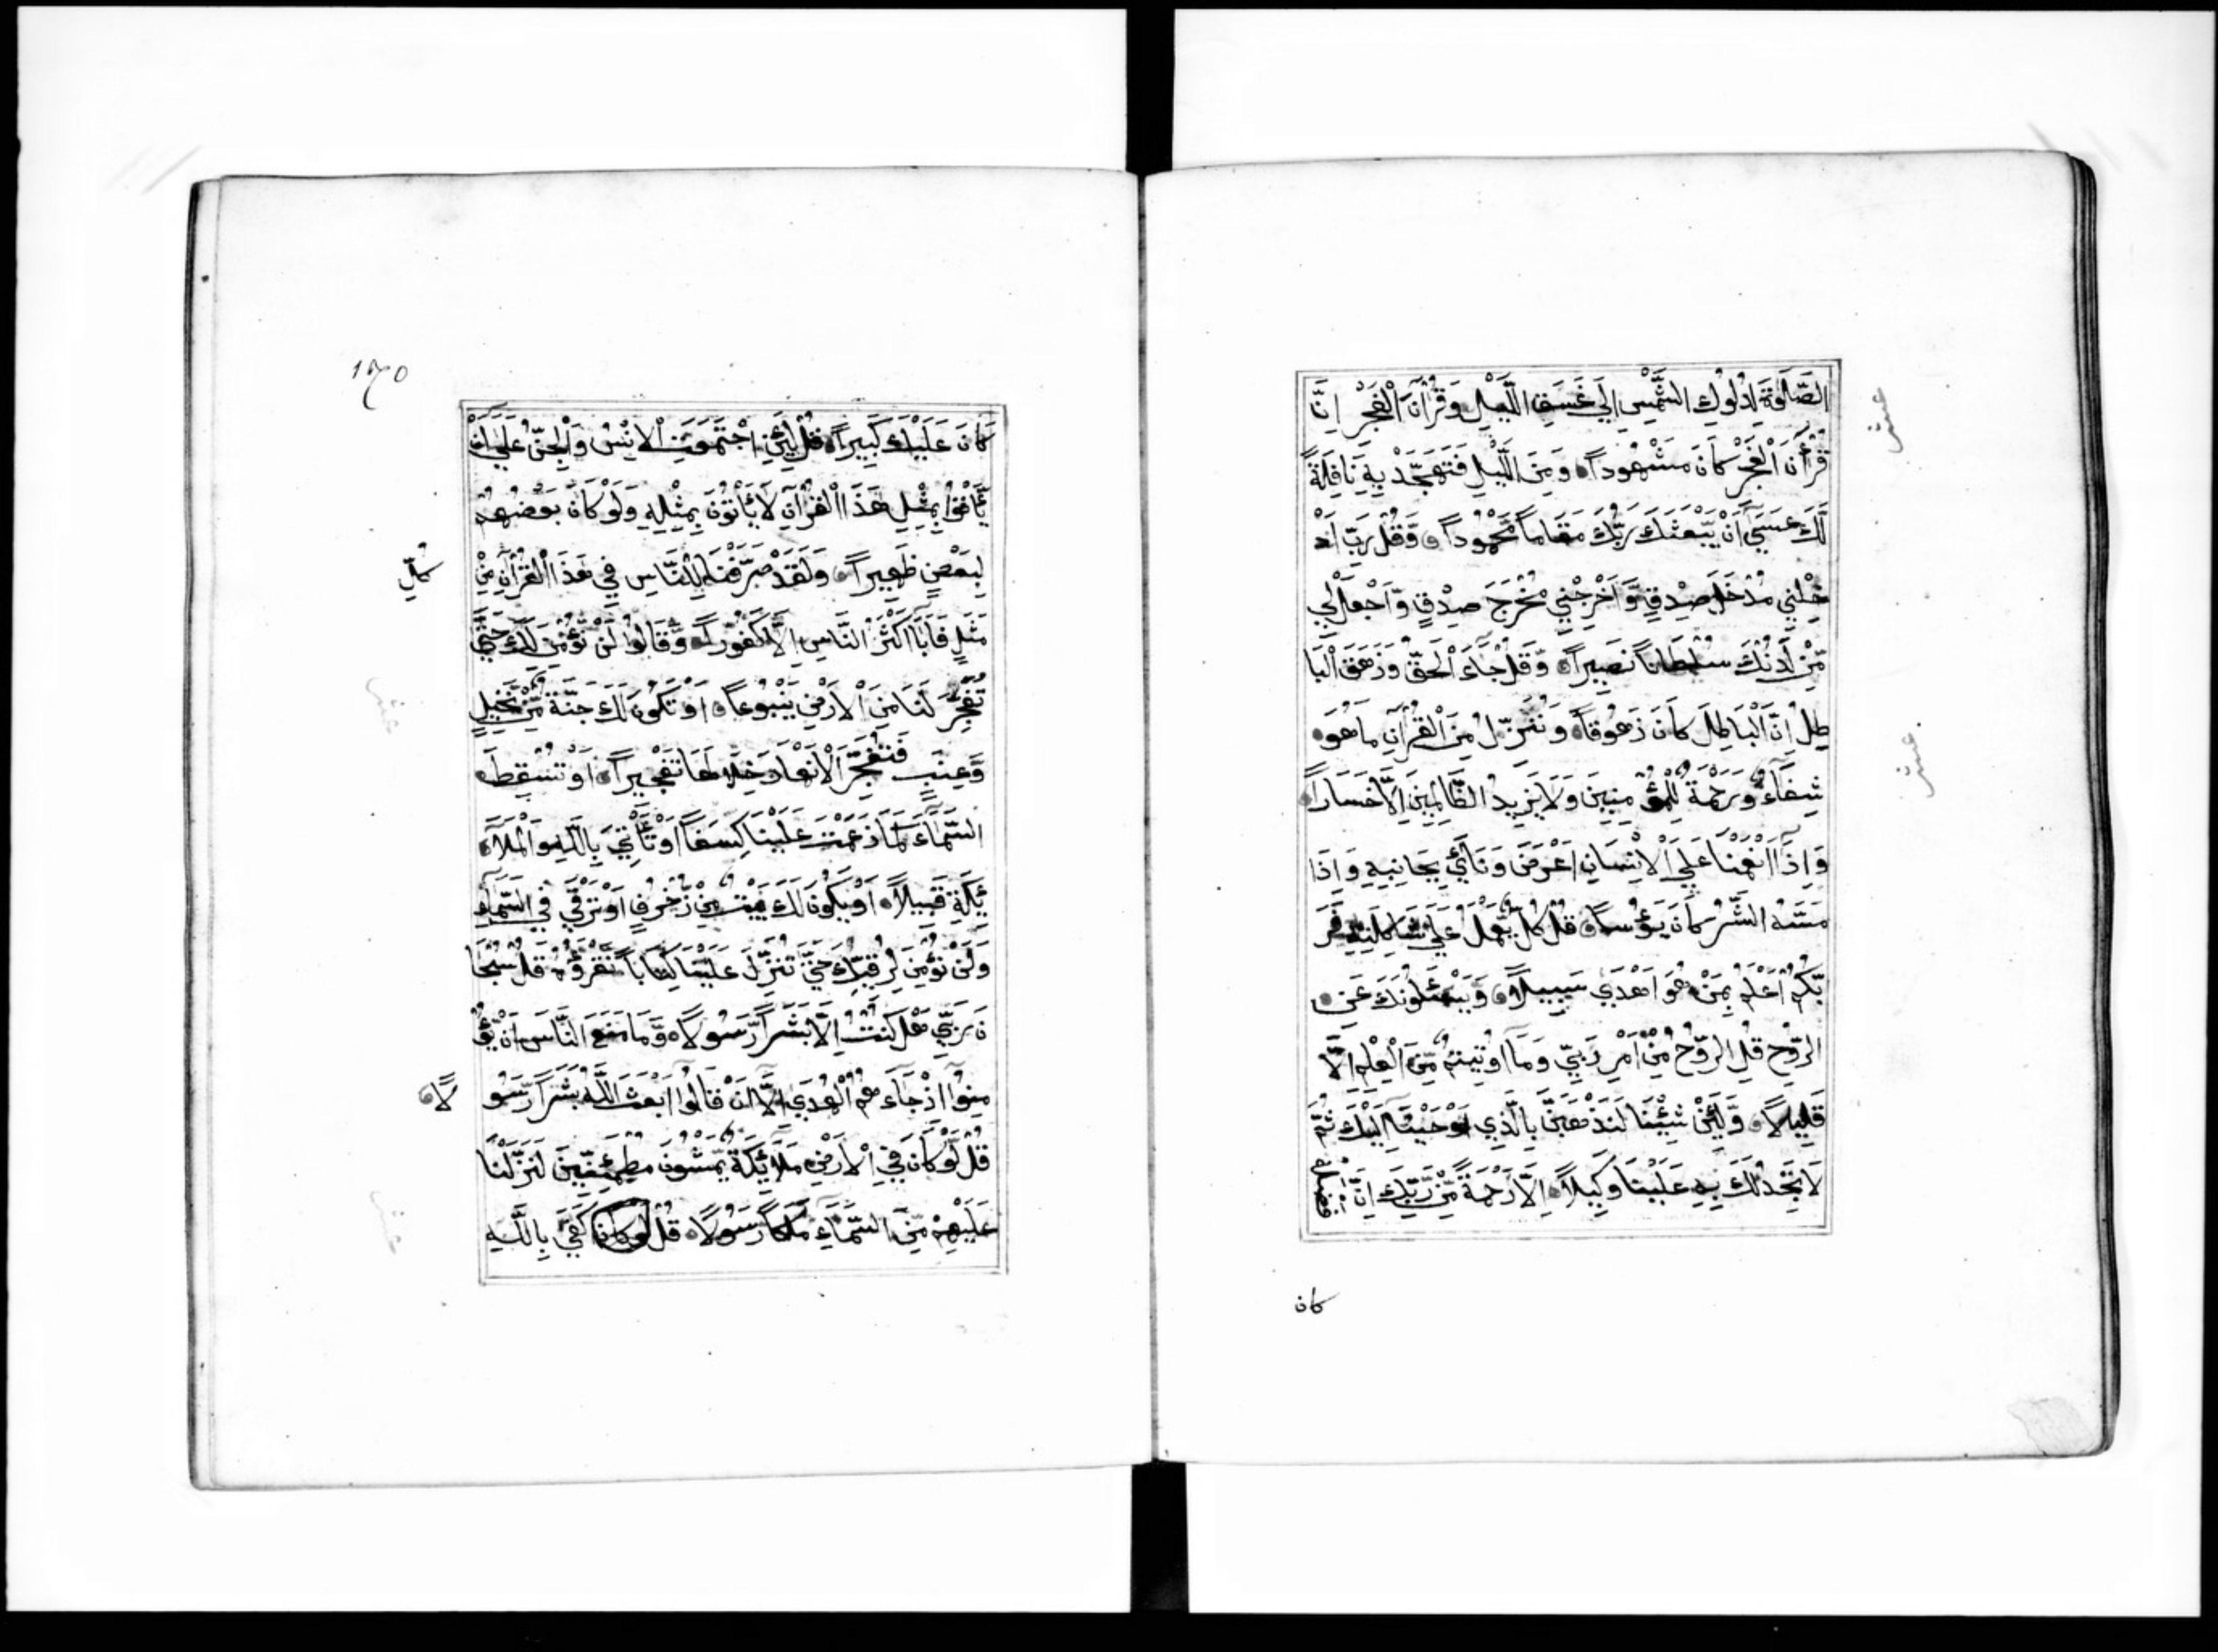 الصَّلَوٰةَ لِدُلُوكِ الشَّمْسِ إِلَي غَسَقِ اللَّيْلِ وَقُرْآنَ الْفَجْرِ اِنَّ
قُرْأٰنَ الْفَجْرِ كَانَ مَشْهُوداً وَمِنَ اللَّيْلِ فَتَهَجَّدْ بِهِ نَافِلَةً
لَّكَ عَسَيٓ اَنْ يَّبْعَثَكَ رَبُّكَ مَقَاماً مَّحْمُوداً وَّقُلْ رَبِّ اَدْ
خِلْنِي مُدْخَلَ صِدْقٍ وَّاَخْرِجْنِي مُخْرَجَ صِدْقٍ وَّاجْعَلْ لِي
مِّنْ لَّدُنْكَ سُلْطَاناً نَّصِيراً وَّقُلْ جَآءَ الْحَقُّ وَزَهَقَ الْبَا
طِلُ اِنَّ الْبَاطِلَ كَانَ زَهُوقاً وَنُنَزِّلُ مِنَ الْقُرْآنِ مَا هُوَ
شِفَآءٌ وَّرَحْمَةٌ لِّلْمُؤْمِنِينَ وَلَا يَزِيدُ الظَّالِمِينَ اِلَّا خَسَاراً
وَاِذَآ اَنْعَمْنَا عَلَي الْاِنْسَانِ اَعْرَضَ وَنَأَيٰ بِجَانِبِهِ وَاِذَا
مَسَّهُ الشَّرُّ كَانَ يَؤُساً قُلْ كُلٌّ يَّعْمَلُ عَلَيٰ شَاكِلَتِهِ فَرَ
بُّكُمْ اَعْلَمُ بِمَنْ هُوَ اَهْدَيٰ سَبِيلاً وَيَسْئَلُونَكَ عَنِ
الرُّوحِ قُلِ الرُّوحُ مِنْ اَمْرِ رَبِّي وَمَآ اُوتِيتُمْ مِّنَ الْعِلْمِ اِلَّا
قَلِيلاً وَّلَئِنْ شِئْنَا لَنَذْهَبَنَّ بِالَّذِي اَوْحَيْنَآ اِلَيْكَ ثُمَّ
لَا تَجِدُ لَكَ بِهِ عَلَيْنَا وَكِيلاً اِلَّا رَحْمَةً مِّنْ رَّبِّكَ اِنَّ فَضْلَهُ
كان
كَانَ عَلَيْكَ كَبِيراً قُلْ لَّئِنِ اجْتَمَعَتِ الْاِنْسُ وَالْجِنُّ عَلَيٓ اَنْ
يَّأْتُوا بِمِثْلِ هَذَا الْقُرْآنِ لَا يَأْتُونَ بِمِثْلِهِ وَلَوْ كَانَ بَعْضُهُمْ
لِبَعْضٍ ظَهِيراً وَلَقَدْ صَرَّفْنَا لِلنَّاسِ فِي هَذَا الْقُرْآنِ مِنْ
كُلِّ
مَثَلٍ فَاَبَيٓ اَكْثَرُ النَّاسِ اِلَّا كُفُوراً وَّقَالُوا لَنْ نُّؤْمِنَ لَكَ حَتَّيٰ
تَفْجُرَ لَنَا مِنَ الْاَرْضِ يَنْبُوعاً اَوْ تَكُونَ لَكَ جَنَّةٌ مِّنْ نَّخِيلٍ
وَّعِنَبٍ فَتُفَجِّرَ الْاَنْهَارَ خِلَالَهَا تَفْجِيراً اَوْ تُسْقِطَ
السَّمَآءَ كَمَا زَعَمْتَ عَلَيْنَا كِسَفاً اَوْ تَأْتِيَ بِاللَّهِ وَالْمَلَآ
ئِكَةِ قَبِيلاً اَوْ يَكُونَ لَكَ بَيْتٌ مِّنْ زُخْرُفٍ اَوْ تَرْقَيٰ فِي السَّمَآءِ
وَلَنْ نُّؤْمِنَ لِرُقِيِّكَ حَتَّيٰ تُنَزِّلَ عَلَيْنَا كِتَاباً نَّقْرَؤُهُ قُلْ سُبْحَا
نَ رَبِّي هَلْ كُنْتُ اِلَّا بَشَراً رَّسُولاً وَّمَا مَنَعَ النَّاسَ اَنْ يُّؤْ
مِنُوآ اِذْ جَآءَهُمُ الْهُدَيٰ اِلَّآ اَنْ قَالُوآ اَبَعَثَ اللَّهُ بَشَراً رَّسُو
لاً
قُلْ لَّوْ كَانَ فِي الْاَرْضِ مَلَآئِكَةٌ يَّمْشُونَ مُطْمَئِنِّينَ لَنَزَّلْنَا
عَلَيْهِمْ مِّنَ السَّمَآءِ مَلَكاً رَّسُولاً قُلْ لو كان كَفَيٰ بِاللَّهِ
عشر
عشر